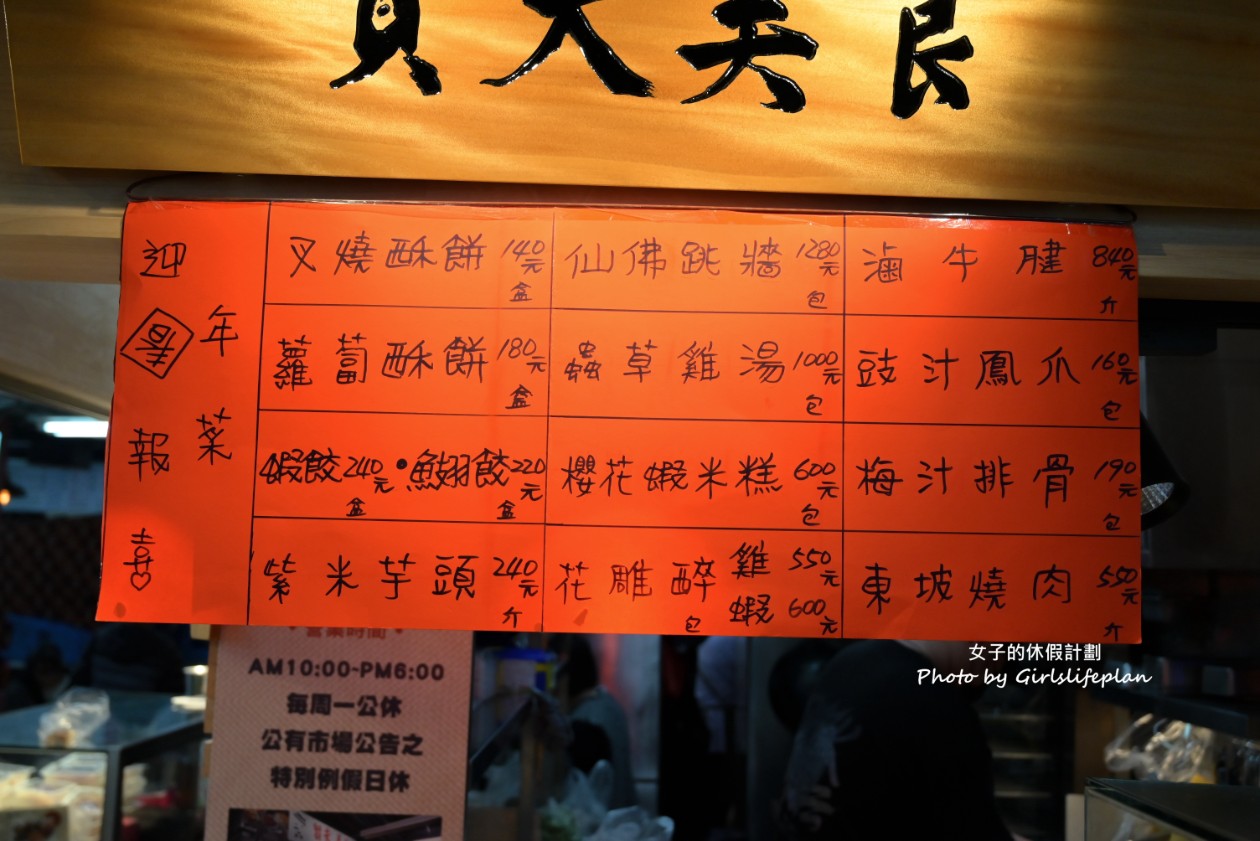 迎春報喜
年菜
叉燒酥餅 140元盒
仙佛跳牆 1280元包
滷牛腱 840元斤
蘿蔔酥餅 180元盒
蟲草雞湯 1000元包
豉汁鳳爪 160元包
蝦餃 240元盒・魚翅餃 220元盒
櫻花蝦米糕 600元包
梅汁排骨 190元包
紫米芋頭 240元斤
花雕醉 雞 550元
蝦 600元 包
東坡燒肉 550元斤
營業時間
AM10:00~PM6:00
每周一公休
公有市場公告之
特別例假日休
女子的休假計劃
Photo by Girlslifeplan